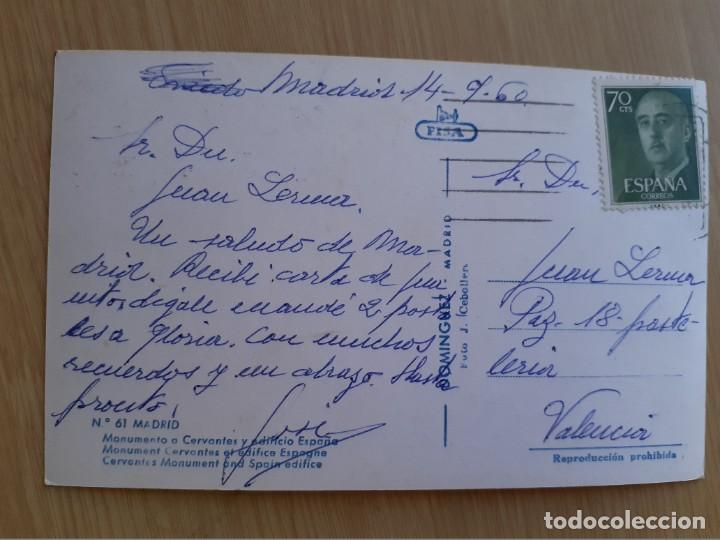 Madrid 14-9-60
Sr. Dn.
Juan Lerma.
Un saludo de Ma-
drid. Recibí carta de Jua-
nito, dígale mandé 2 posta
les a Gloria. Con muchos
recuerdos y un abrazo. Hasta
pronto,
Nº 61 MADRID
Monumento a Cervantes y edificio España
Monument Cervantes et édifice Espagne
Cervantes Monument and Spain edifice
FISA
DOMINGUEZ MADRID
Foto J. Cebollero
70
CTS
ESPAÑA
CORREOS
Sr. Dn,
Juan Lerma
Paz - 18 - paste-
lería
Valencia
Reproducción prohibida
todocoleccion.net